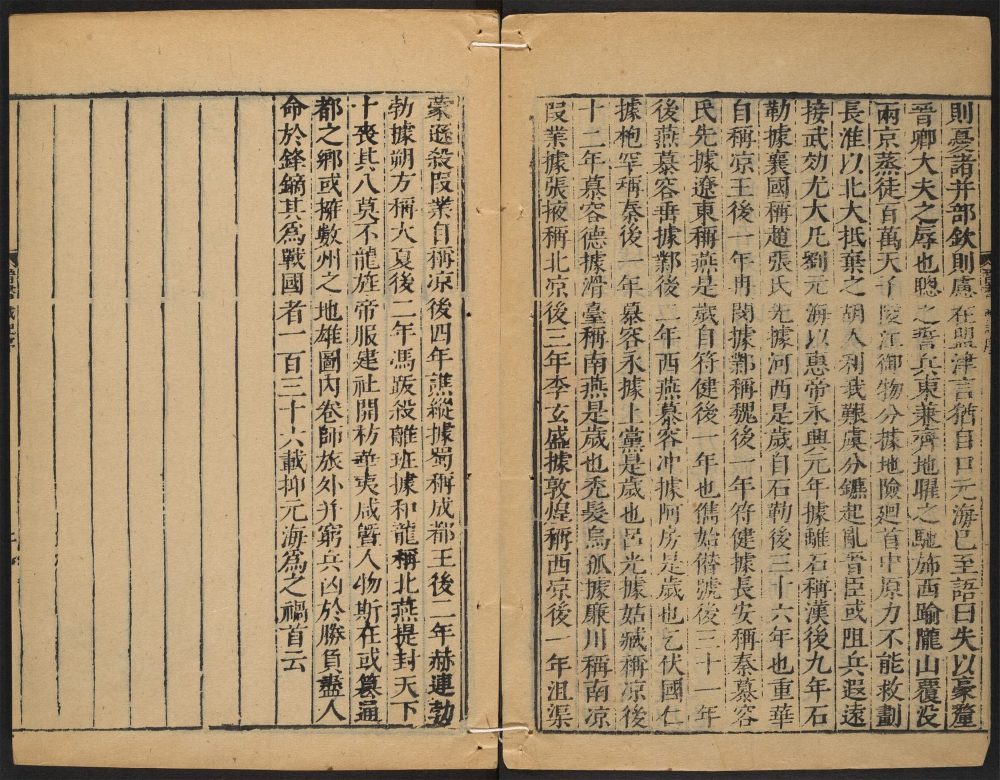 則憂諸并部欽則慮在盟津言猶自口元海已至語曰失以豪釐
晉卿大夫之辱也聰之誓兵東兼齊地曜之馳斾西踰隴山覆没
兩京蒸徒百萬天子陵江御物分據地險廻首中原力不能救劃
長淮以北大抵棄之胡人利我艱虞分鑣起亂晉臣或阻兵遐遠
接武効尤大凡劉元海以惠帝永興元年據離石稱漢後九年石
勒據襄國稱趙張氏先據河西是歲自石勒後三十六年也重華
自稱凉王後一年冉閔據鄴稱魏後一年苻健據長安稱秦慕容
氏先據遼東稱燕是歲自苻健後一年也儁始僭號後三十一年
後燕慕容垂據鄴後二年西燕慕容冲據阿房是歲也乞伏國仁
據枹罕稱秦後一年慕容永據上黨是歲也呂光據姑臧稱凉後
十二年慕容德據滑臺稱南燕是歲也禿髮烏孤據廉川稱南凉
叚業據張掖稱北凉後三年李玄盛據敦煌稱西凉後一年沮渠
蒙遜殺叚業自稱凉後四年譙縱據蜀稱成都王後二年赫連勃
勃據朔方稱大夏後二年馮跋殺離班據和龍稱北燕提封天下
十喪其八莫不龍旌帝服建社開祊華夷咸曁人物斯在或篡通
都之鄉或擁數州之地雄圖內卷師旅外并窮兵凶於勝負盡人
命於鋒鏑其爲戰國者一百三十六載抑元海爲之禍首云